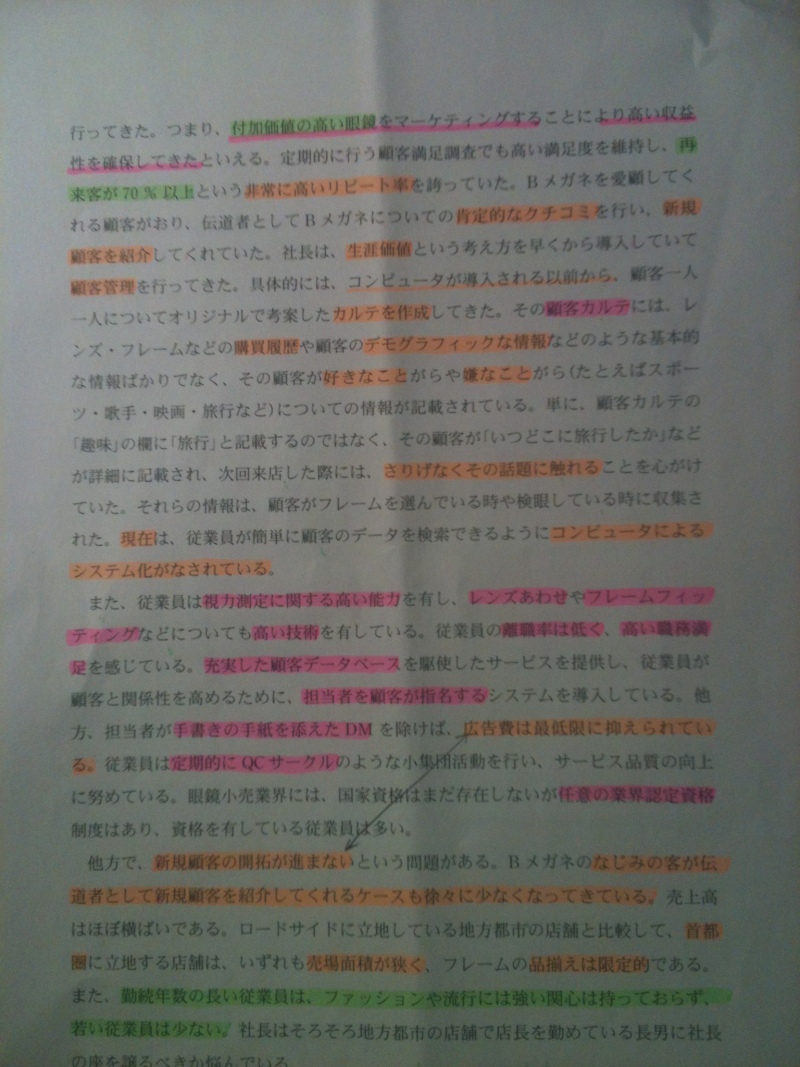 行ってきた。つまり、付加価値の高い眼鏡をマーケティングすることにより高い収益
性を確保してきたといえる。定期的に行う顧客満足調査でも高い満足度を維持し、再
来客が70%以上という非常に高いリピート率を誇っていた。Bメガネを愛顧してく
れる顧客がおり、伝道者としてBメガネについての肯定的なクチコミを行い、新規
顧客を紹介してくれていた。社長は、生涯価値という考え方を早くから導入していて
顧客管理を行ってきた。具体的には、コンピュータが導入される以前から、顧客一人
一人についてオリジナルで考案したカルテを作成してきた。その顧客カルテには、レ
ンズ・フレームなどの購買履歴や顧客のデモグラフィックな情報などのような基本的
な情報ばかりでなく、その顧客が好きなことがらや嫌なことがら(たとえばスポー
ツ・歌手・映画・旅行など)についての情報が記載されている。単に、顧客カルテの
「趣味」の欄に「旅行」と記載するのではなく、その顧客が「いつどこに旅行したか」など
が詳細に記載され、次回来店した際には、さりげなくその話題に触れることを心がけ
ていた。それらの情報は、顧客がフレームを選んでいる時や検眼している時に収集さ
れた。現在は、従業員が簡単に顧客のデータを検索できるようにコンピュータによる
システム化がなされている。
また、従業員は視力測定に関する高い能力を有し、レンズあわせやフレームフィッ
ティングなどについても高い技術を有している。従業員の離職率は低く、高い職務満
足を感じている。充実した顧客データベースを駆使したサービスを提供し、従業員が
顧客と関係性を高めるために、担当者を顧客が指名するシステムを導入している。他
方、担当者が手書きの手紙を添えたDMを除けば、広告費は最低限に抑えられてい
る。従業員は定期的にQCサークルのような小集団活動を行い、サービス品質の向上
に努めている。眼鏡小売業界には、国家資格はまだ存在しないが任意の業界認定資格
制度はあり、資格を有している従業員は多い。
他方で、新規顧客の開拓が進まないという問題がある。Bメガネのなじみの客が伝
道者として新規顧客を紹介してくれるケースも徐々に少なくなってきている。売上高
はほぼ横ばいである。ロードサイドに立地している地方都市の店舗と比較して、首都
圏に立地する店舗は、いずれも売場面積が狭く、フレームの品揃えは限定的である。
また、勤続年数の長い従業員は、ファッションや流行には強い関心は持っておらず、
若い従業員は少ない。社長はそろそろ地方都市の店舗で店長を勤めている長男に社長
の座を譲るべきか悩んでいる。